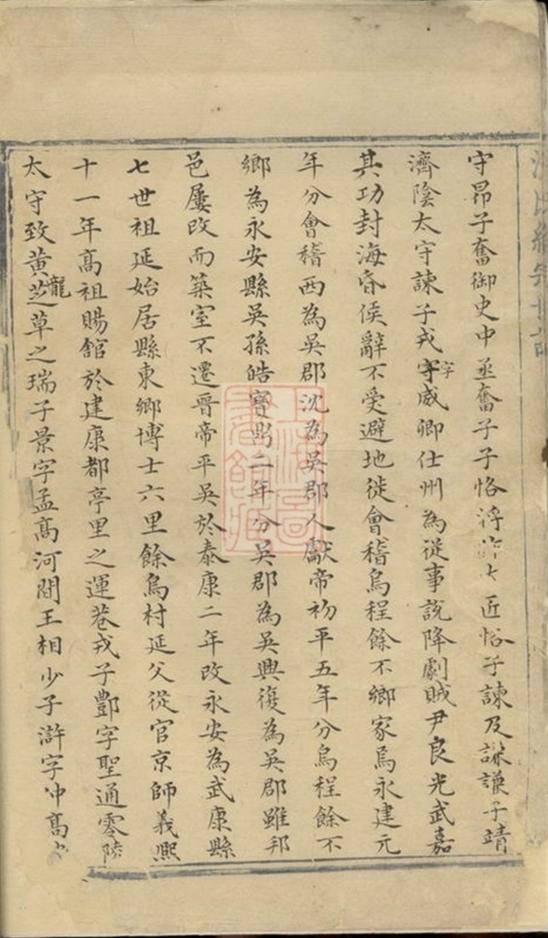 守昂子奮御史中丞奮子子恪浮 七匠恪子諫及謙謙子靖
濟陰太守諫子戎守字威卿仕州為從事說降劇賊尹良光武嘉
其功封海昏侯辭不受避地徙會稽烏程餘不鄉家焉永建元
年分會稽西為吳郡沈為吳郡人獻帝初平五年分烏程餘不
鄉為永安縣吳孫皓寶鼎二年分吳郡為吳興復為吳郡雖邦
邑屢改而築室不遷晉帝平吳於泰康二年改永安為武康縣
七世祖延始居縣東鄉博士六里餘烏村延父從官京師義熙
十一年高祖賜館於建康都亭里之運巷戎子酆字聖通零陵
太守致黃龍芝草之瑞子景字孟高河閒王相少子滸字仲高